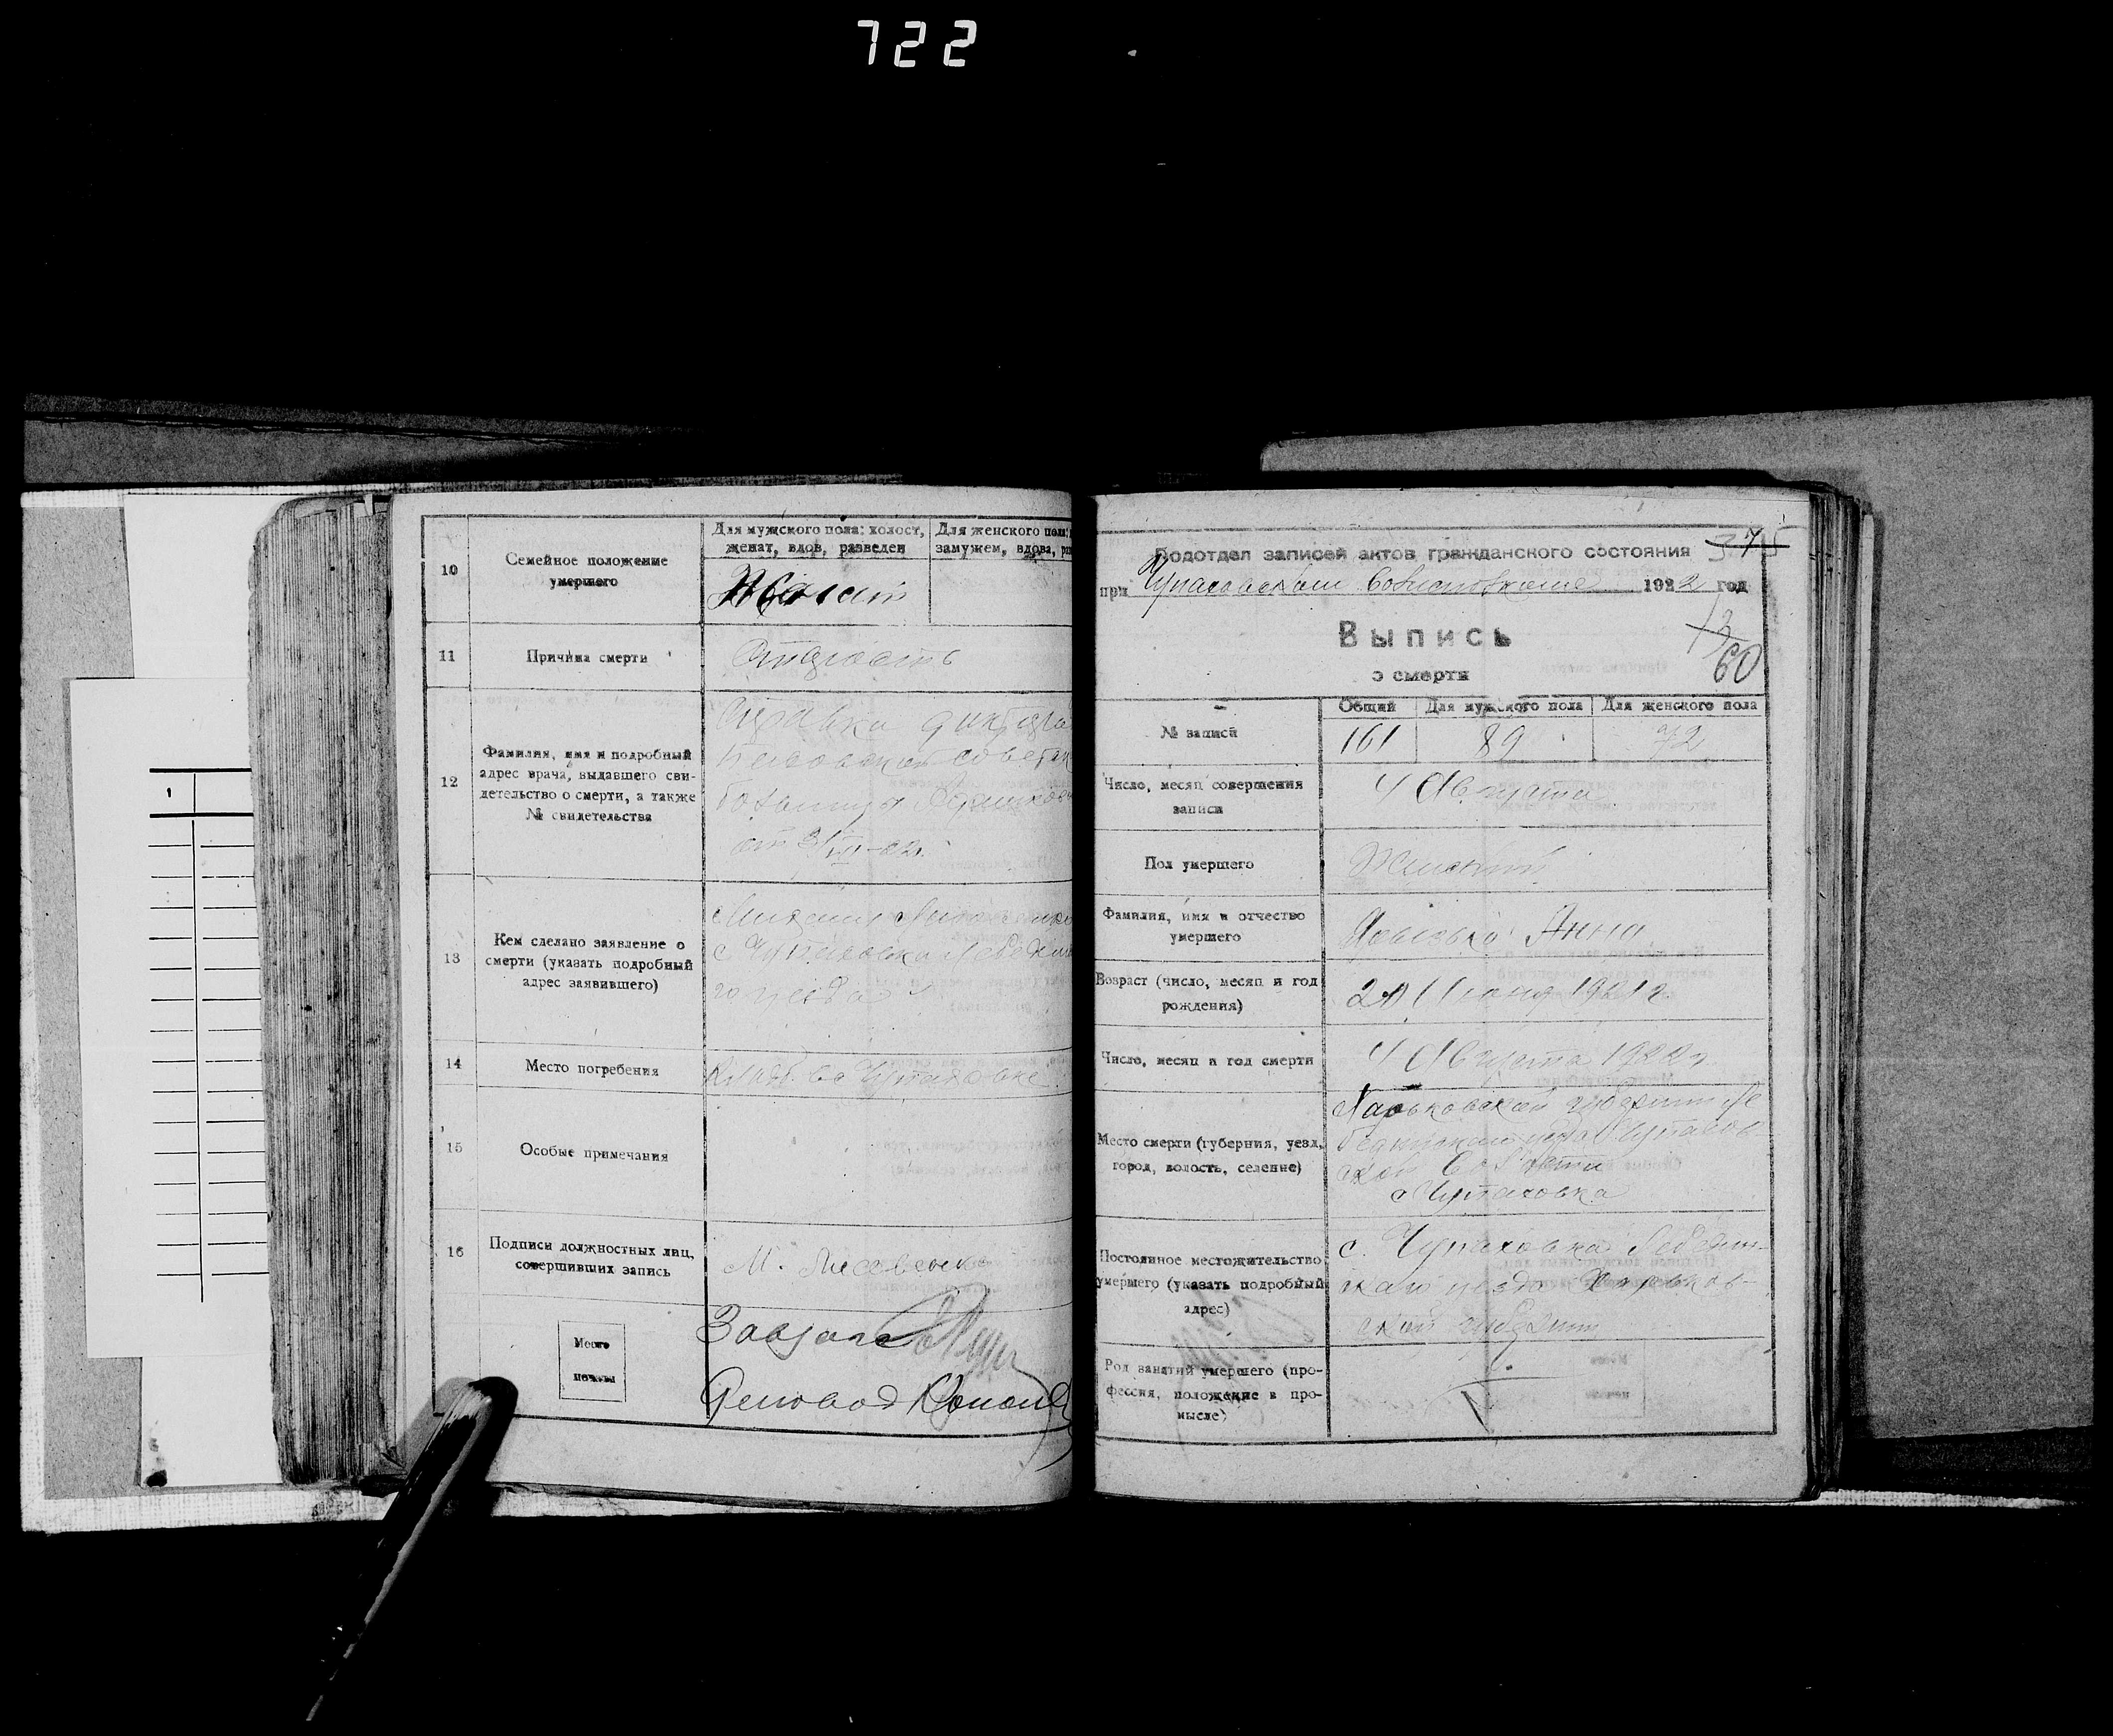 722
10
Семейное положение
умершего
Для мужского пола: холост,
женат, вдов, разведен
Для женского пола:
замужем, вдова,
Женат
11
Причина смерти
Старость
12
Фамилия, имя и подробный
адрес врача, выдавшего сви-
детельство о смерти, а также
№ свидетельства
Справка
от 3/VIII-22.
13
Кем сделано заявление о
смерти (указать подробный
адрес заявившего)
с Чупаховка Лебедин
го уезда
14
Место погребения
Кладб. в с Чупаховке
15
Особые примечания
16
Подписи должностных лиц,
совершивших запись
М. Лисовенко
Место
печати
Завзагс
Деловод
Подотдел записей актов гражданского состояния
при Чупаховском Волисполкоме 1922 год
Выпись
о смерти
60
№ записи
Общий
Для мужского пола
Для женского пола
161
89
72
Число, месяц совершения
записи
4 Августа
Пол умершего
Женский
Фамилия, имя и отчество
умершего
Анна
Возраст (число, месяц и год
рождения)
Июня 1921 г.
Число, месяц и год смерти
4 Августа 1922 г
Место смерти (губерния, уезд,
город, волость, селение)
Харьковской губернии Ле
бединского уезда Чупахов
ской Волости
с Чупаховка
Постоянное местожительство
умершего (указать подробный
адрес)
с. Чупаховка Лебедин-
скаго уезда Харьков-
ской губернии
Род занятий умершего (про-
фессия, положение в про-
мысле)